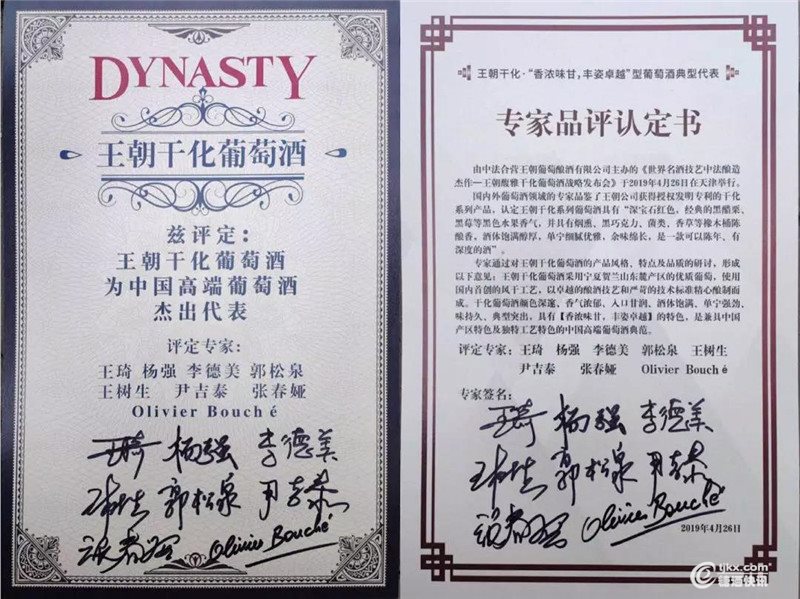 DYNASTY
王朝干化葡萄酒
兹评定：
王朝干化葡萄酒
为中国高端葡萄酒
杰出代表
评定专家：
王琦 杨强 李德美 郭松泉
王树生 尹吉泰 张春娅
Olivier Bouché
王琦 杨强 李德美
王树生 郭松泉 尹吉泰
张春娅 Olivier Bouché
王朝干化·“香浓味甘，丰姿卓越”型葡萄酒典型代表
专家品评认定书
由中法合营王朝葡萄酿酒有限公司主办的《世界名酒技艺中法酿造
杰作—王朝馥雅干化葡萄酒战略发布会》于2019年4月26日在天津举行。
国内外葡萄酒领域的专家品鉴了王朝公司获得授权发明专利的干化
系列产品，认定王朝干化系列葡萄酒具有“深宝石红色，经典的黑醋栗、
黑莓等黑色水果香气，并具有烟熏、黑巧克力、菌类、香草等橡木桶陈
酿香，酒体饱满醇厚，单宁细腻优雅，余味绵长，是一款可以陈年、有
深度的酒”。
专家通过对王朝干化葡萄酒的产品风格、特点及品质的研讨，形成
以下意见：王朝干化葡萄酒采用宁夏贺兰山东麓产区的优质葡萄，使用
国内首创的风干工艺，以卓越的酿酒技艺和严苛的技术标准精心酿制而
成。干化葡萄酒颜色深邃、香气浓郁、入口甘润、酒体饱满、单宁强劲、
味持久、典型突出，具有【香浓味甘，丰姿卓越】的特色，是兼具中国
产区特色及独特工艺特色的中国高端葡萄酒典范。
评定专家：王琦 杨强 李德美 郭松泉 王树生
尹吉泰 张春娅 Olivier Bouché
专家签名：
王琦 杨强 李德美
王树生 郭松泉 尹吉泰
张春娅 Olivier Bouché
2019年4月26日
tjkx.com
糖酒快讯